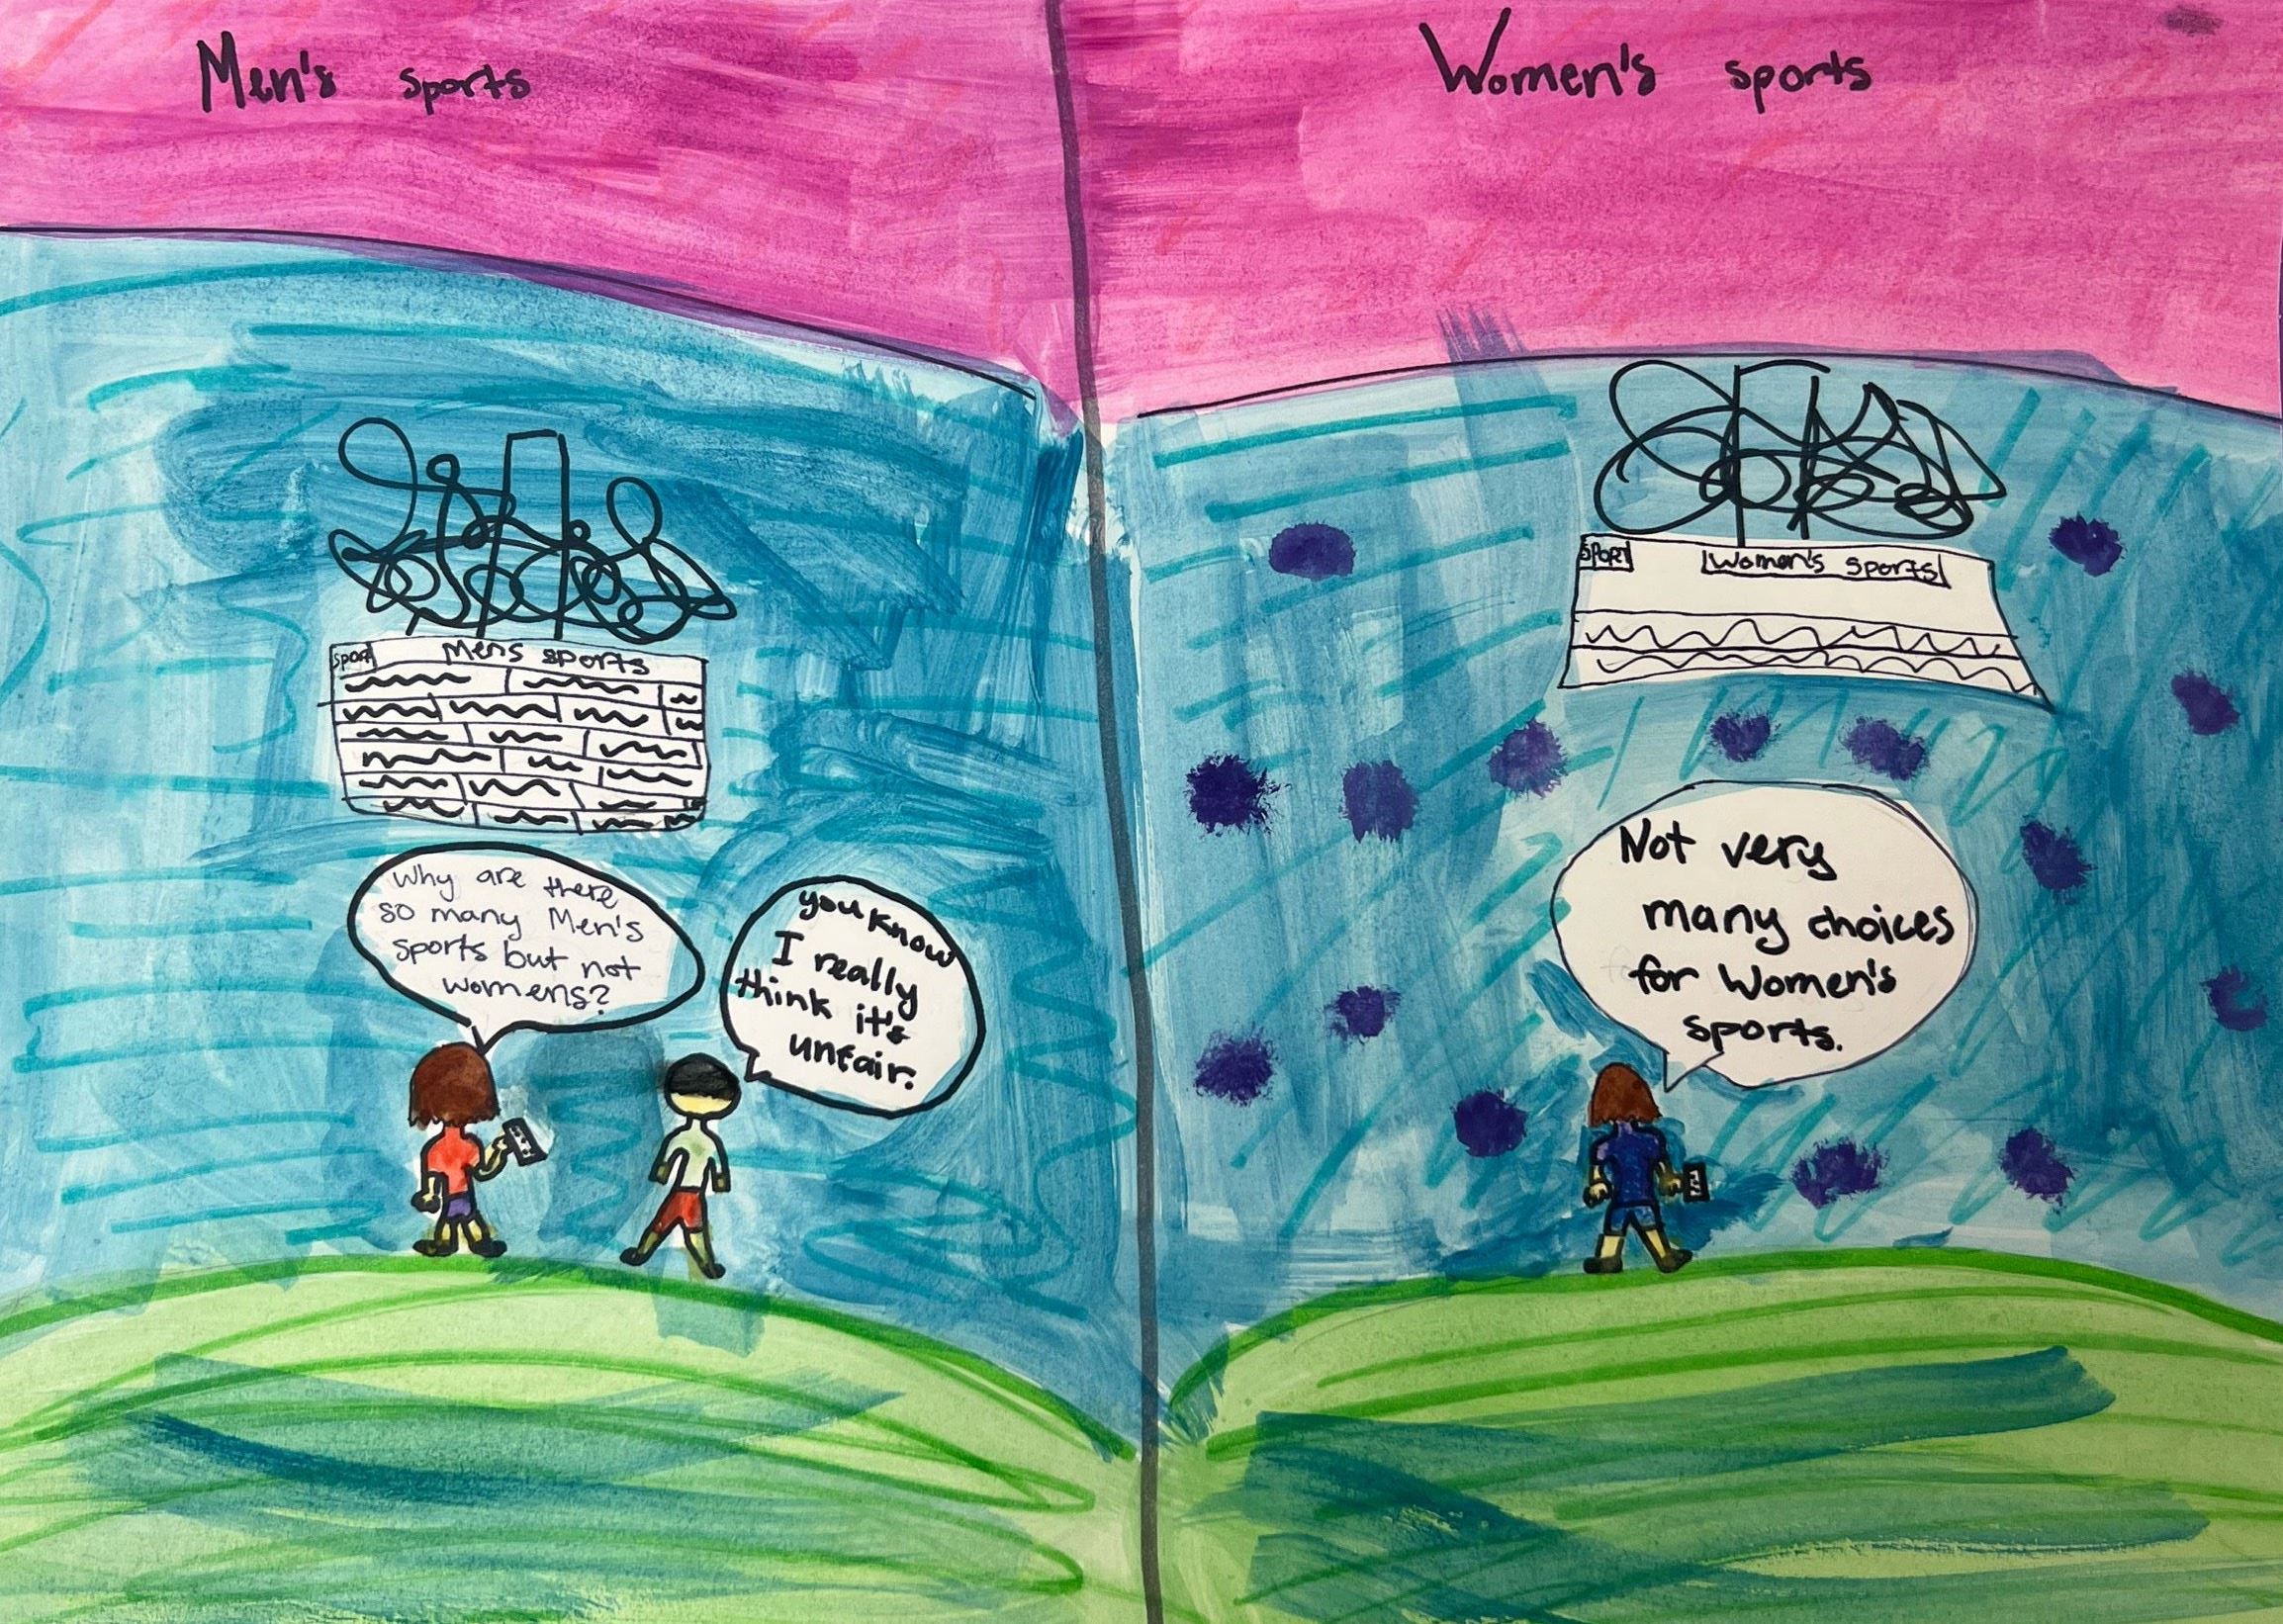 Men's sports
Women's sports
sport Mens sports
Why are there
so many Men's
sports but not
womens?
you know
I really
think it's
unfair.
sport Women's sports
Not very
many choices
for Women's
sports.